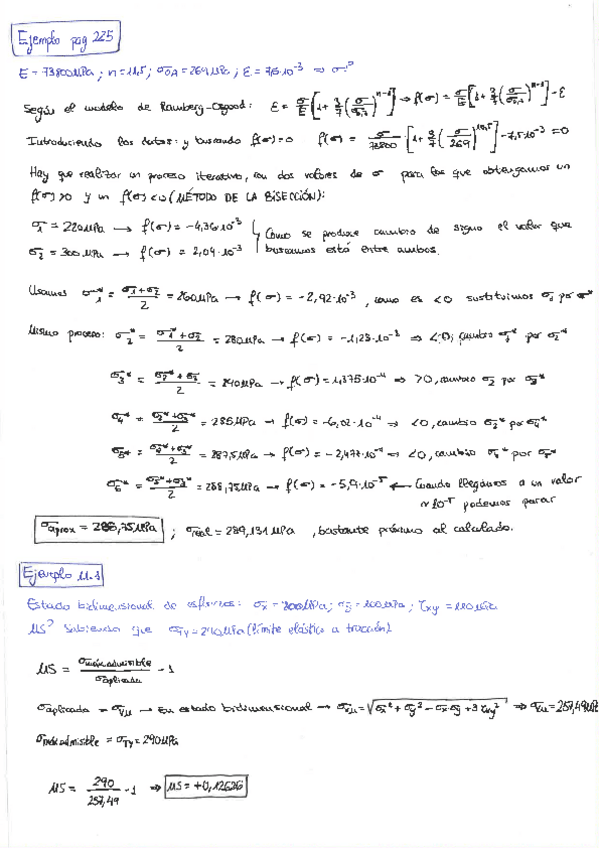 Ejemplo pag 225
E = 73800MPa ; n = 11.5 ; σ0A = 269MPa ; ε = 7,5·10⁻³ ⇒ σ?
Según el modelo de Ramberg-Osgood: ε = σ/E [1 + 3/7 (σ/σ0,7)^(n-1)] → f(σ) = σ/E [1 + 3/7 (σ/σ0,7)^(n-1)] - ε
Introduciendo los datos: y buscando f(σ)=0 f(σ) = σ/73800 [1 + 3/7 (σ/269)^10,5] - 7,5·10⁻³ = 0
Hay que realizar un proceso iterativo, con dos valores de σ para los que obtengamos un
f(σ)>0 y un f(σ)<0 (MÉTODO DE LA BISECCIÓN):
σ1 = 220MPa → f(σ) = -4,36·10⁻³
σ2 = 300MPa → f(σ) = 2,04·10⁻³
Como se produce cambio de signo el valor que
buscamos está entre ambos.
Usamos σ*1 = (σ1+σ2)/2 = 260MPa → f(σ) = -2,92·10⁻³, como es <0 sustituimos σ1 por σ*
Mismo proceso: σ2* = (σ1*+σ2)/2 = 280MPa → f(σ) = -1,23·10⁻³ ⇒ <0; cambio σ1* por σ2*
σ3* = (σ2*+σ2)/2 = 290MPa → f(σ) = 1,375·10⁻⁴ ⇒ >0, cambio σ2 por σ3*
σ4* = (σ2*+σ3*)/2 = 285MPa → f(σ) = -6,02·10⁻⁴ ⇒ <0, cambio σ2* por σ4*
σ5* = (σ4*+σ3*)/2 = 287,5MPa → f(σ) = -2,477·10⁻⁴ ⇒ <0, cambio σ4* por σ5*
σ6* = (σ5*+σ3*)/2 = 288,75MPa → f(σ) = -5,9·10⁻⁵ ← Cuando llegamos a un valor
≈10⁻⁵ podemos parar
σaprox = 288,75MPa ; σreal = 289,131MPa , bastante próximo al calculado.
Ejemplo 11.1
Estado bidimensional de esfuerzos: σx = 200MPa; σy = 100MPa; τxy = 110MPa
MS? Sabiendo que σTy = 290MPa (límite elástico a tracción)
MS = σmáx admisible/σaplicada - 1
σaplicada = σVM → En estado bidimensional → σVM = √(σx² + σy² - σx·σy + 3τxy²) ⇒ σVM = 257,49MPa
σmáx admisible = σTy = 290MPa
MS = 290/257,49 - 1 ⇒ MS = +0,12626